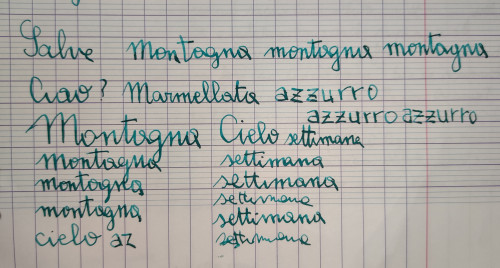 Salve montagna montagna montagna
Ciao? Marmellata azzurro
azzurro azzurro
Montagna Cielo settimana
montagna settimana
montagna settimana
settimana
montagna settimana
cielo az settimana